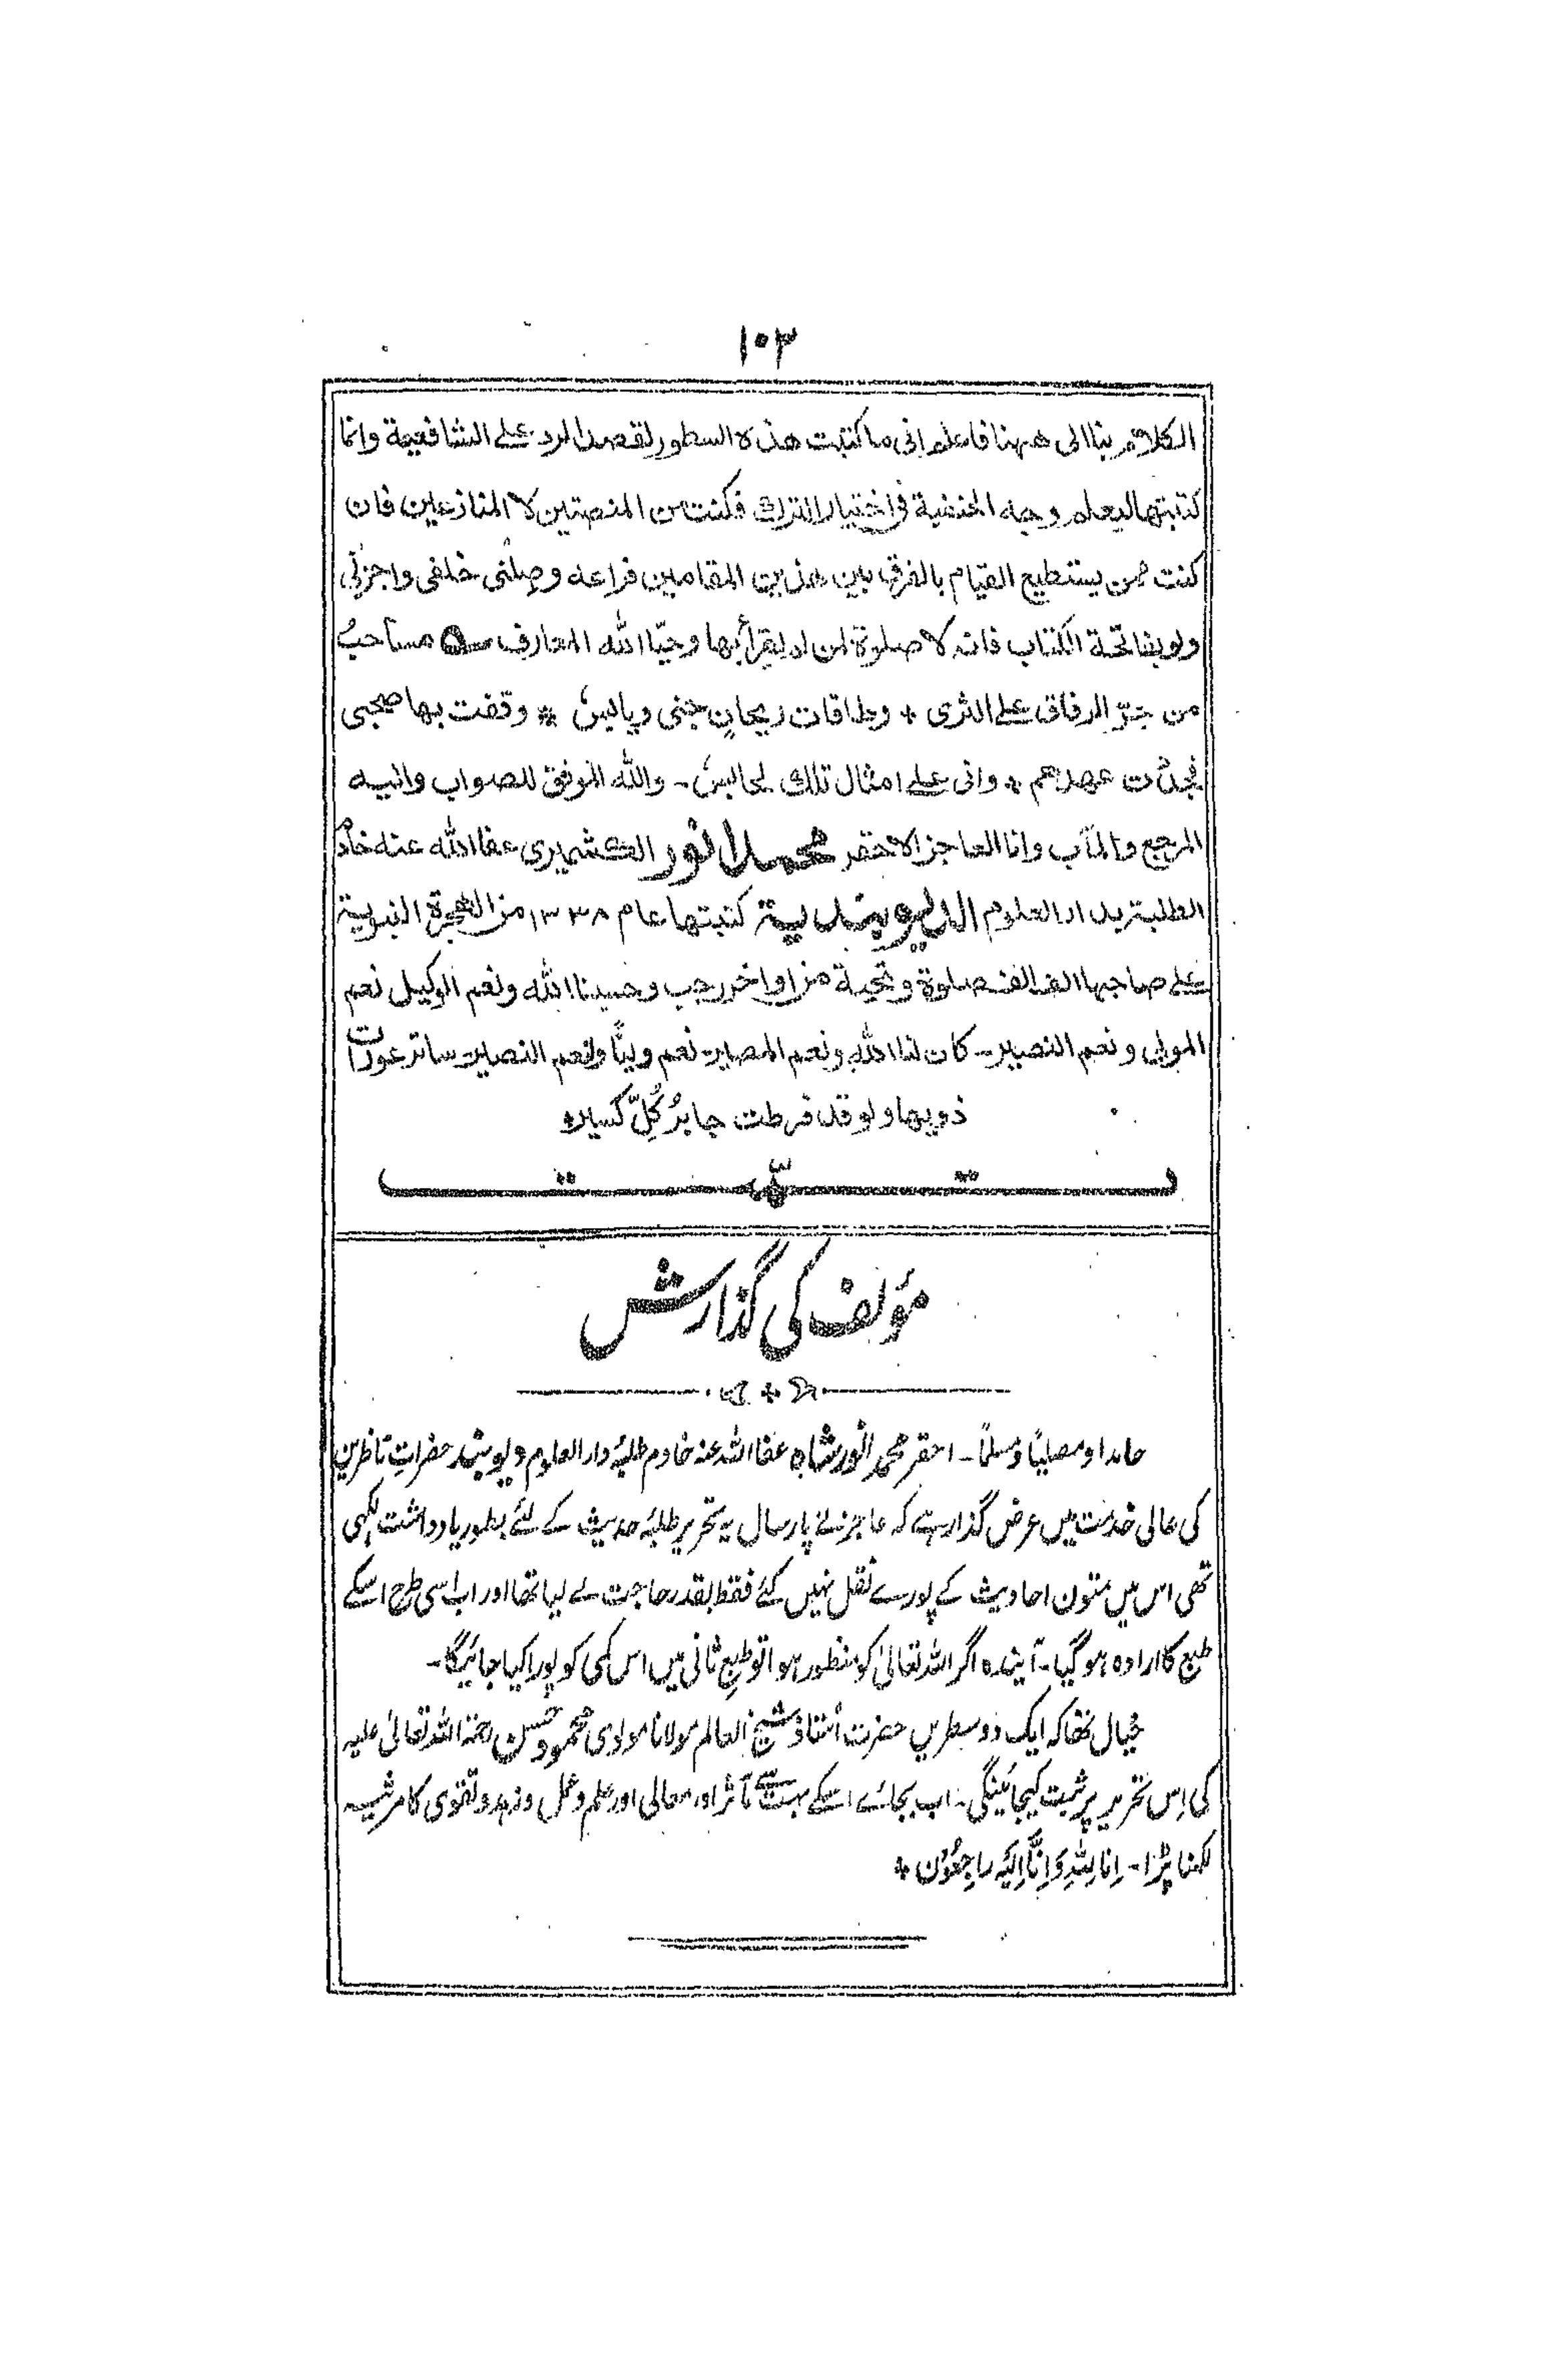 ۱۰۳
الکلام بنا الی ههنا فاعلم انی ما کتبت هذه السطور لقصد الرد علے الشافعیة وانما
کتبتها لیعلم وجه الحنفیة فی اختیار الترک فکنت من المنصتین لا المنازعین فان
کنت ممن یستطیع القیام بالفرق بین هذین المقامین فراعه وصِلْنی خلفی واجزنی
ولو بفاتحة الکتاب فانه لا صلوة لمن لم یقرأ بها وحیّا الله المعارف ؎ مساحبُ
من جرّ الزقاق علے الثری * وطاقات ریحانٍ جنی ویابسُ * وقفت بها صحبی
فجدّدت عهدهم * وانی علے امثال تلک لحابسُ ۔ والله الموفق للصواب والیه
المرجع والمآب وانا العاجز الاحقر محمد انور الکشمیری عفا الله عنه خادم
الطلبة بدار العلوم الدیوبندیة کتبتها عام ۱۳۳۸ من الهجرة النبویة
علے صاحبها الف الف صلوة وتحیة من اواخر رجب وحسبنا الله ونعم الوکیل نعم
المولی ونعم النصیر۔ کان لنا الله ونعم المصیر نعم ولیًّا ولنعم النصیر ساتر عورات
ذویها ولو قد فرطت جابرُ کُلِّ کسیر
تمّت
مؤلف کی گذارش
حامدا ومصلیًا ومسلمًا۔ احقر محمد انور شاہ عفا اللہ عنہ خادم طلبۂ دار العلوم دیوبند حضراتِ ناظرین
کی عالی خدمت میں عرض گذار ہے کہ عاجز نے پارسال یہ تحریر طلبۂ حدیث کے لئے بطور یادداشت لکھی
تھی اس میں متون احادیث کے پورے نقل نہیں کئے فقط بقدر حاجت لے لیا تھا اور اب اسی طرح اسکے
طبع کا ارادہ ہوگیا۔ آیندہ اگر اللہ تعالیٰ کو منظور ہوا تو طبعِ ثانی میں اس کمی کو پورا کیا جائیگا۔
خیال تھا کہ ایک دو سطریں حضرت استاذ شیخ العالم مولانا مولوی محمود حسن رحمۃ اللہ تعالیٰ علیہ
کی اِس تحریر پر ثبت کیجائینگی۔ اب بجائے اسکے بہت سے مآثر اور معالی اور علم وعمل وزہد وتقویٰ کا مرثیہ
لکھنا پڑا۔ اِنا لِلّٰہِ وَاِنَّا اِلَیْہِ راجِعُوْن *